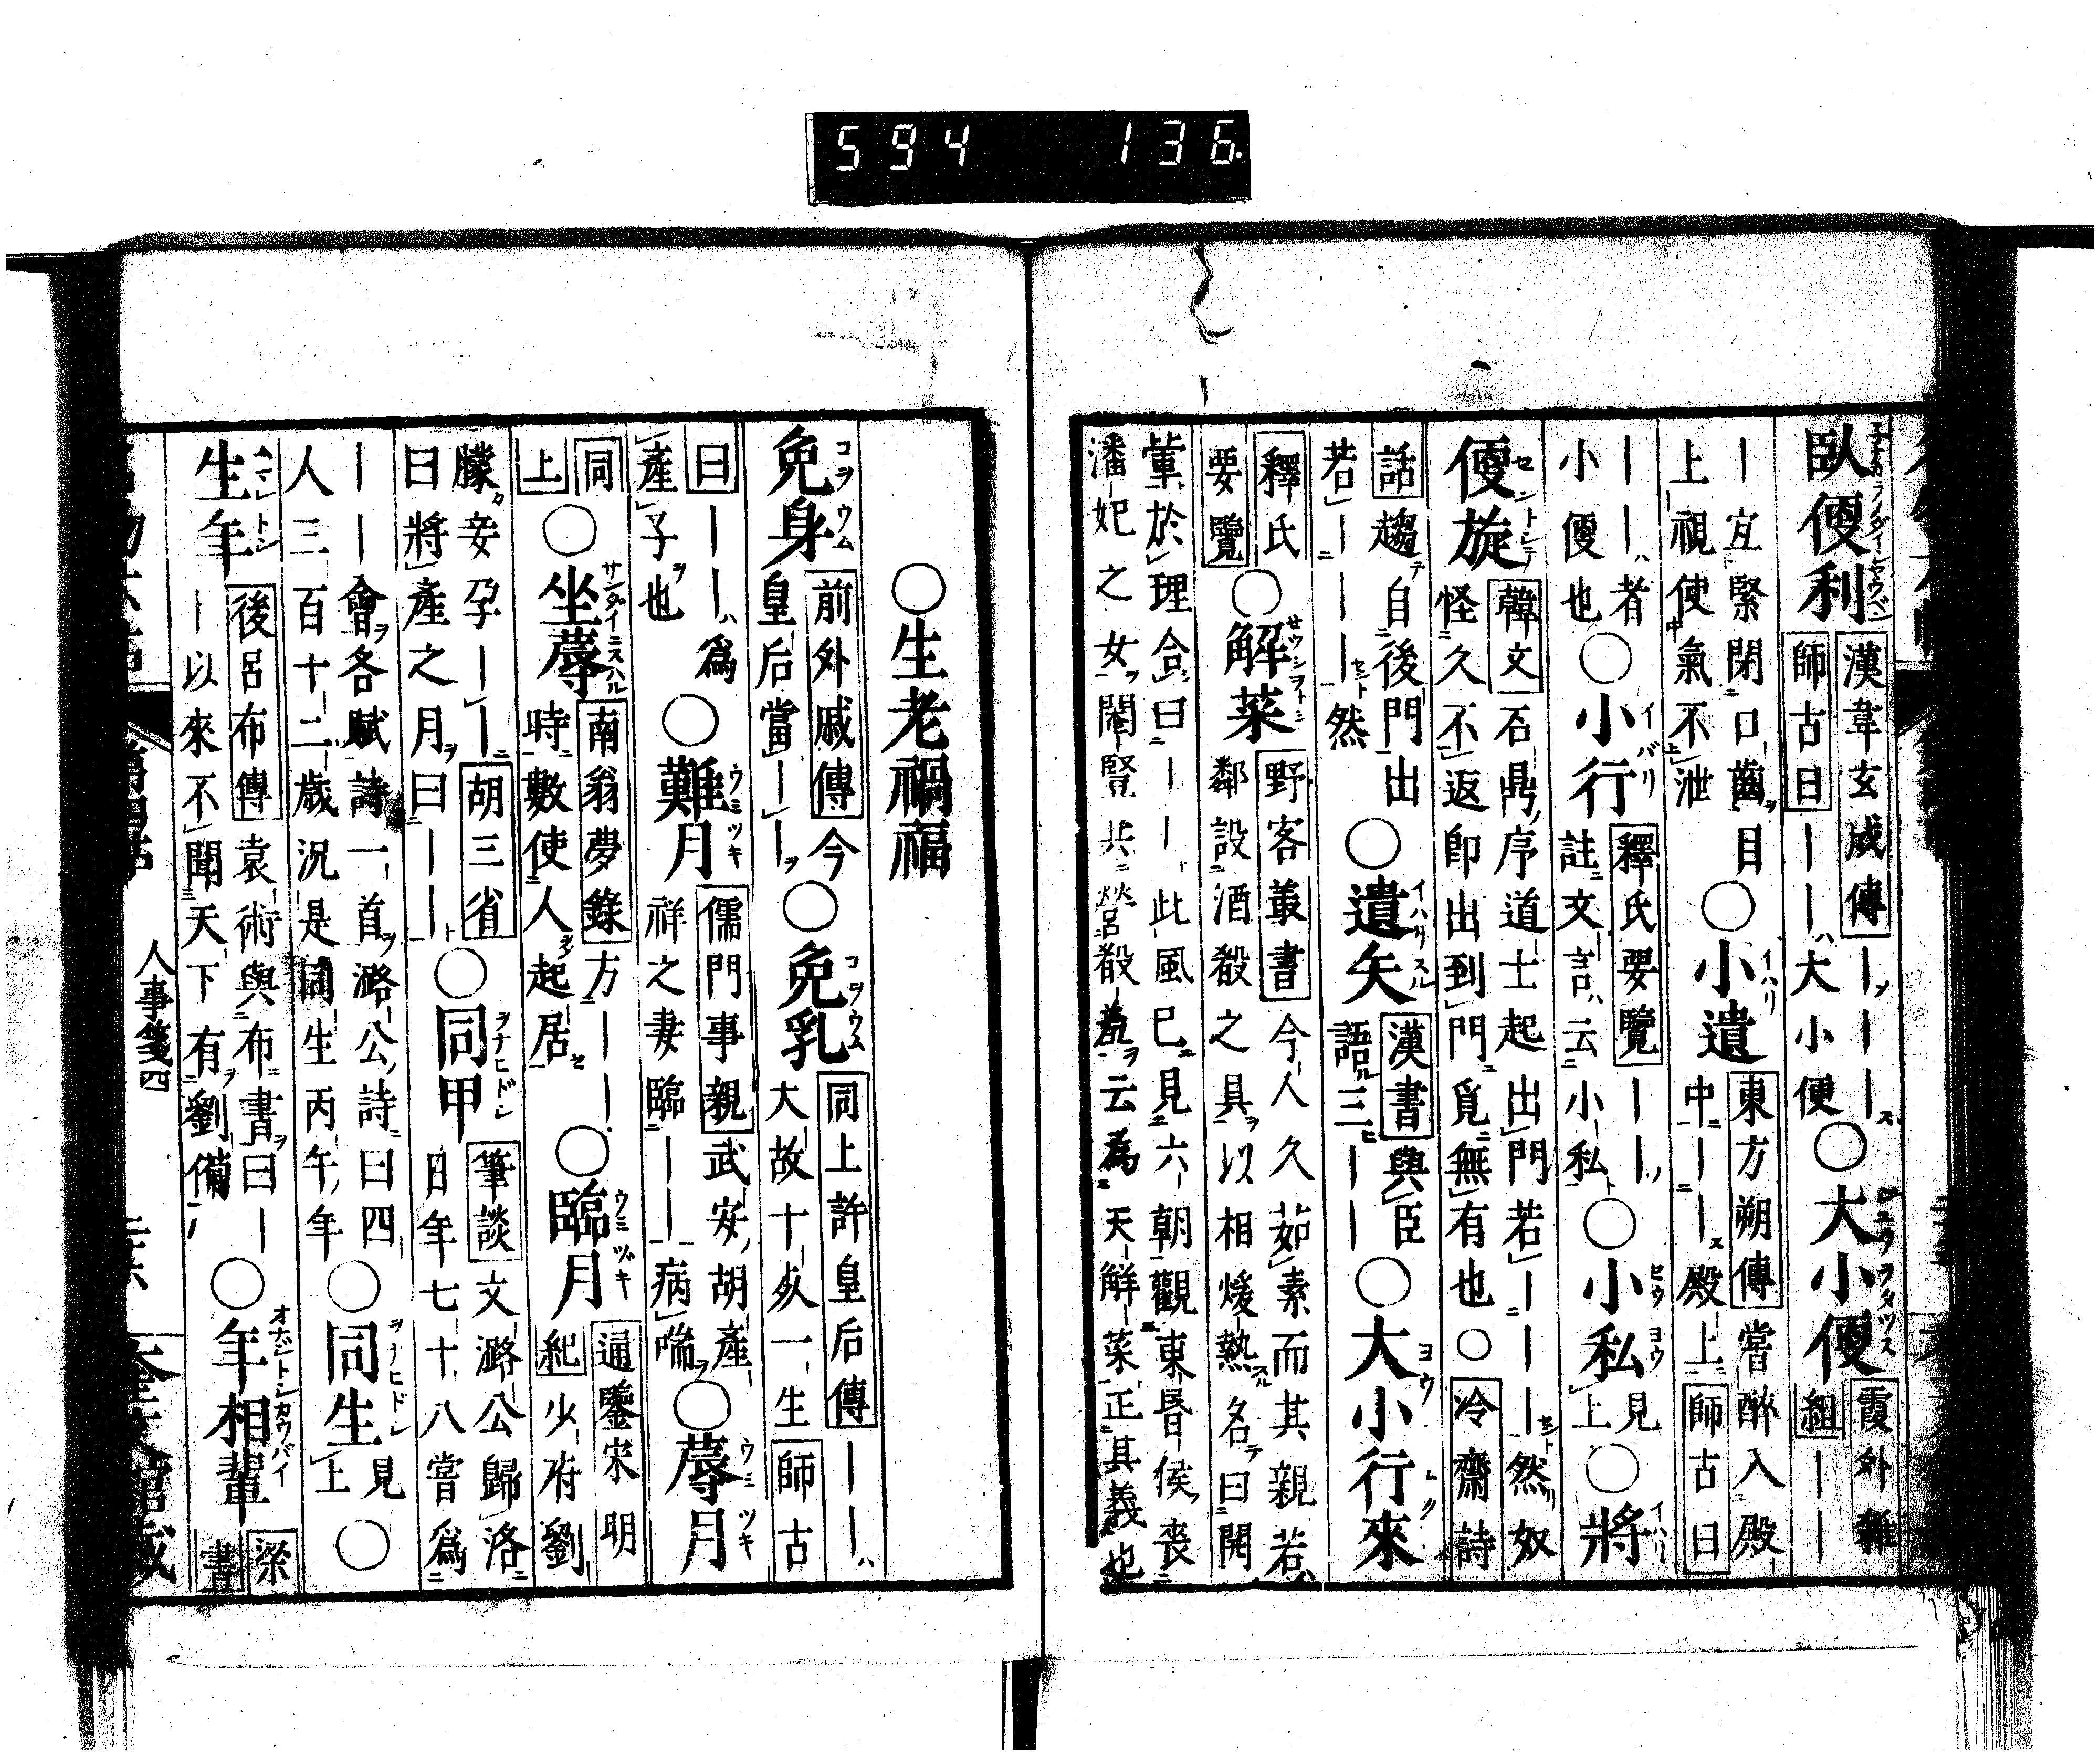 594 136
臥便利 漢韋玄成傳ーーーー
師古曰ーー大小便 ○大小便 霞外雜
組ーー
ー宜緊閉口齒目
上視使氣不泄 ○小遺 東方朔傳嘗醉入殿
中ーー殿上師古曰
ーー者
小便也 ○小行 釋氏要覽ーー
註文言云小私 ○小私 見上 ○將
便旋 韓文石鼎序道士起出門若ーーー然奴
怪久不返卽出到門覓無有也○冷齋詩
話趨自後門出
若ーーー然 ○遺矢 漢書與臣
語三ーー ○大小行來
釋氏
要覽 ○解菜 野客叢書今人久茹素而其親若
鄰設酒殽之具以相煖熱名曰開
葷於理合曰ーーー此風已見六朝觀東昏侯喪
潘妃之女閹豎共營殽羞云為天解菜正其義也
○生老禍福
免身 前外戚傳今
皇后當ーー ○免乳 同上許皇后傳ーー
大故十歺一生師古
曰ーー爲
產子也 ○難月 儒門事親武安胡產
祥之妻臨ーー病喘 ○蓐月
同
上 ○坐蓐 南翁夢錄方ーー
時數使人起居 ○臨月 通鑒宋明
紀少府劉
朦妾孕ーー胡三省
曰將產之月曰ーー ○同甲 筆談文潞公歸洛
日年七十八嘗爲
ーー會各賦詩一首潞公詩曰四
人三百十二歲況是同生丙午年 ○同生 見上 ○
生年 後呂布傳袁術與布書曰ー
ー以來不聞天下有劉備 ○年相輩 梁
書
人事箋四